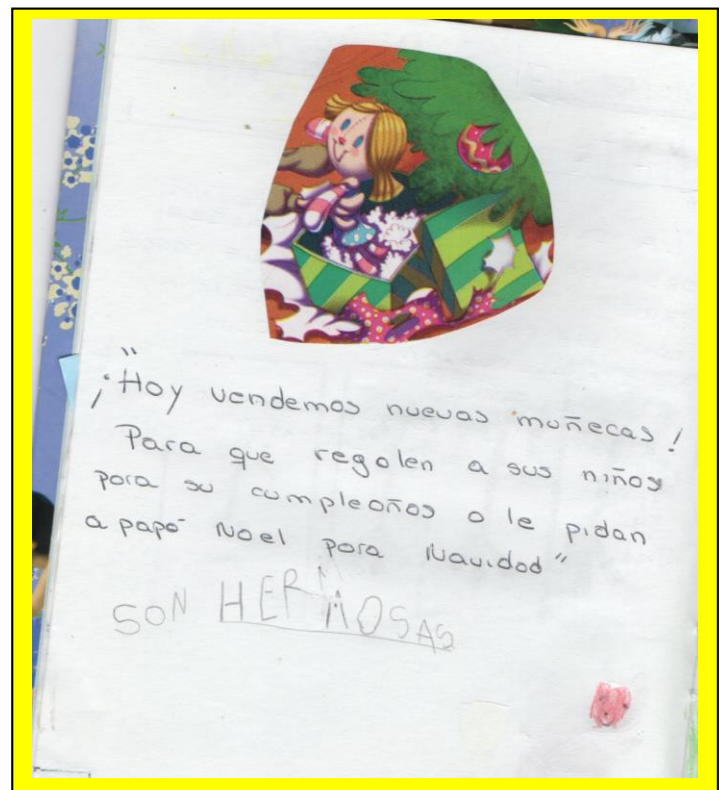 "
¡Hoy vendemos nuevas muñecas!
Para que regalen a sus niños
para su cumpleaños o le pidan
a papá Noel para Navidad"
SON HERMOSAS